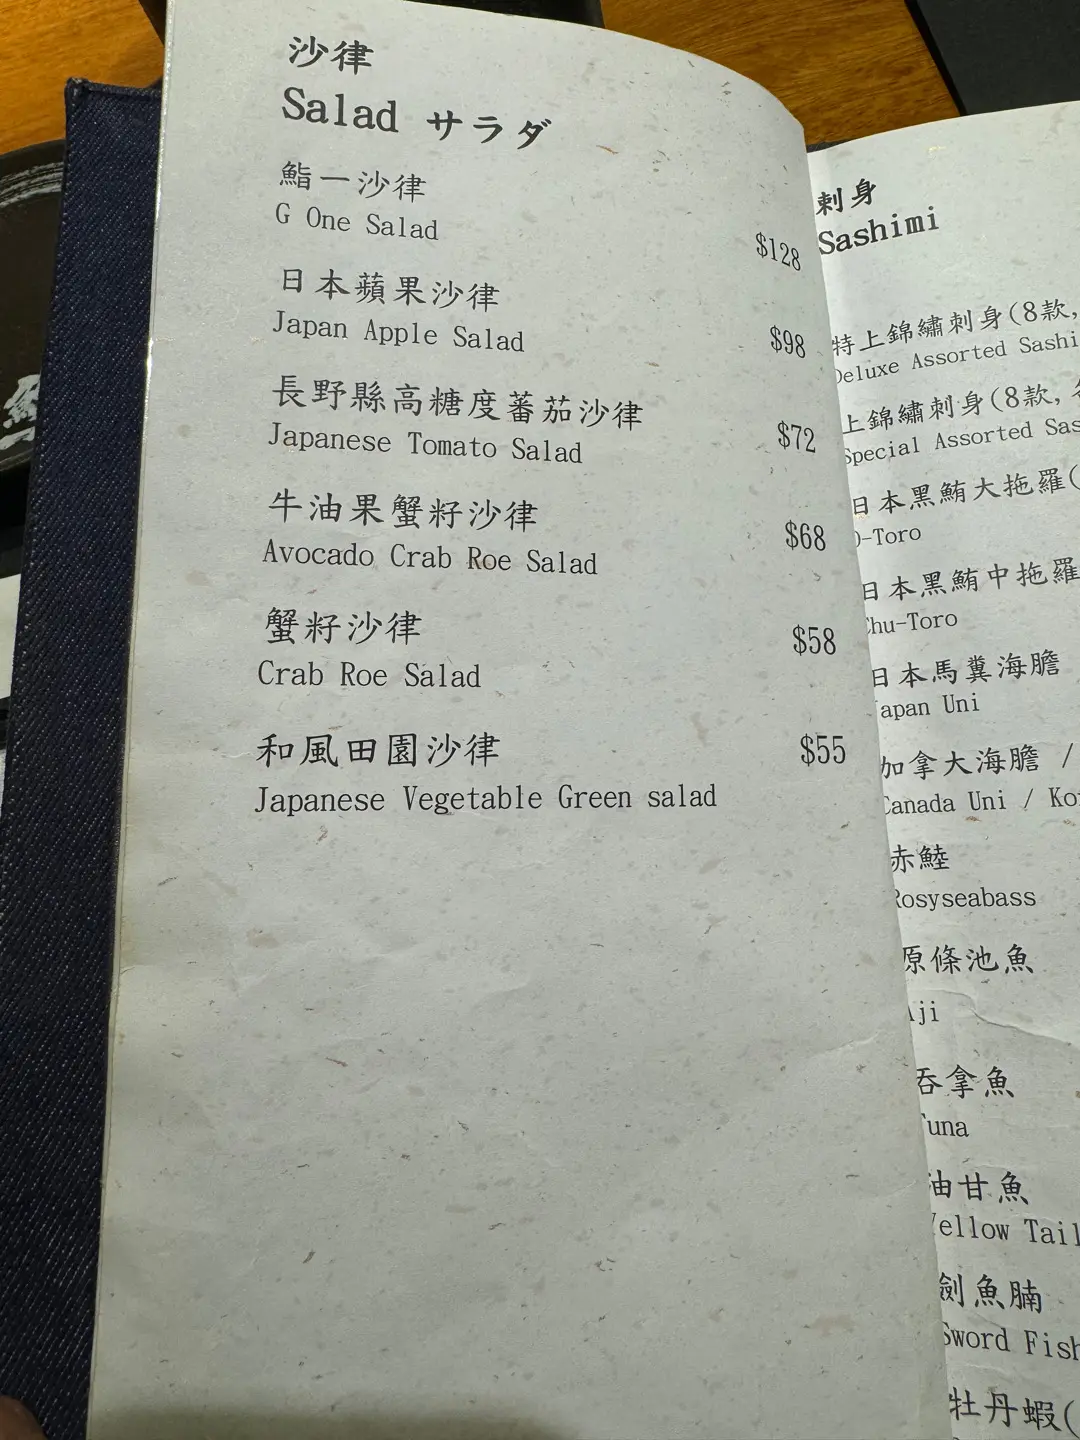 沙律
Salad サラダ
鮨一沙律
G One Salad
$128
日本蘋果沙律
Japan Apple Salad
$98
長野縣高糖度蕃茄沙律
Japanese Tomato Salad
$72
牛油果蟹籽沙律
Avocado Crab Roe Salad
$68
蟹籽沙律
Crab Roe Salad
$58
和風田園沙律
$55
Japanese Vegetable Green salad
刺身
Sashimi
特上錦繡刺身(8款,
Deluxe Assorted Sashi
上錦繡刺身(8款,
Special Assorted Sas
日本黑鮪大拖羅(
O-Toro
日本黑鮪中拖羅
Chu-Toro
日本馬糞海膽
Japan Uni
加拿大海膽 /
Canada Uni / Ko
赤鯥
Rosyseabass
原條池魚
Aji
吞拿魚
Tuna
油甘魚
Yellow Tail
劍魚腩
Sword Fish
牡丹蝦(